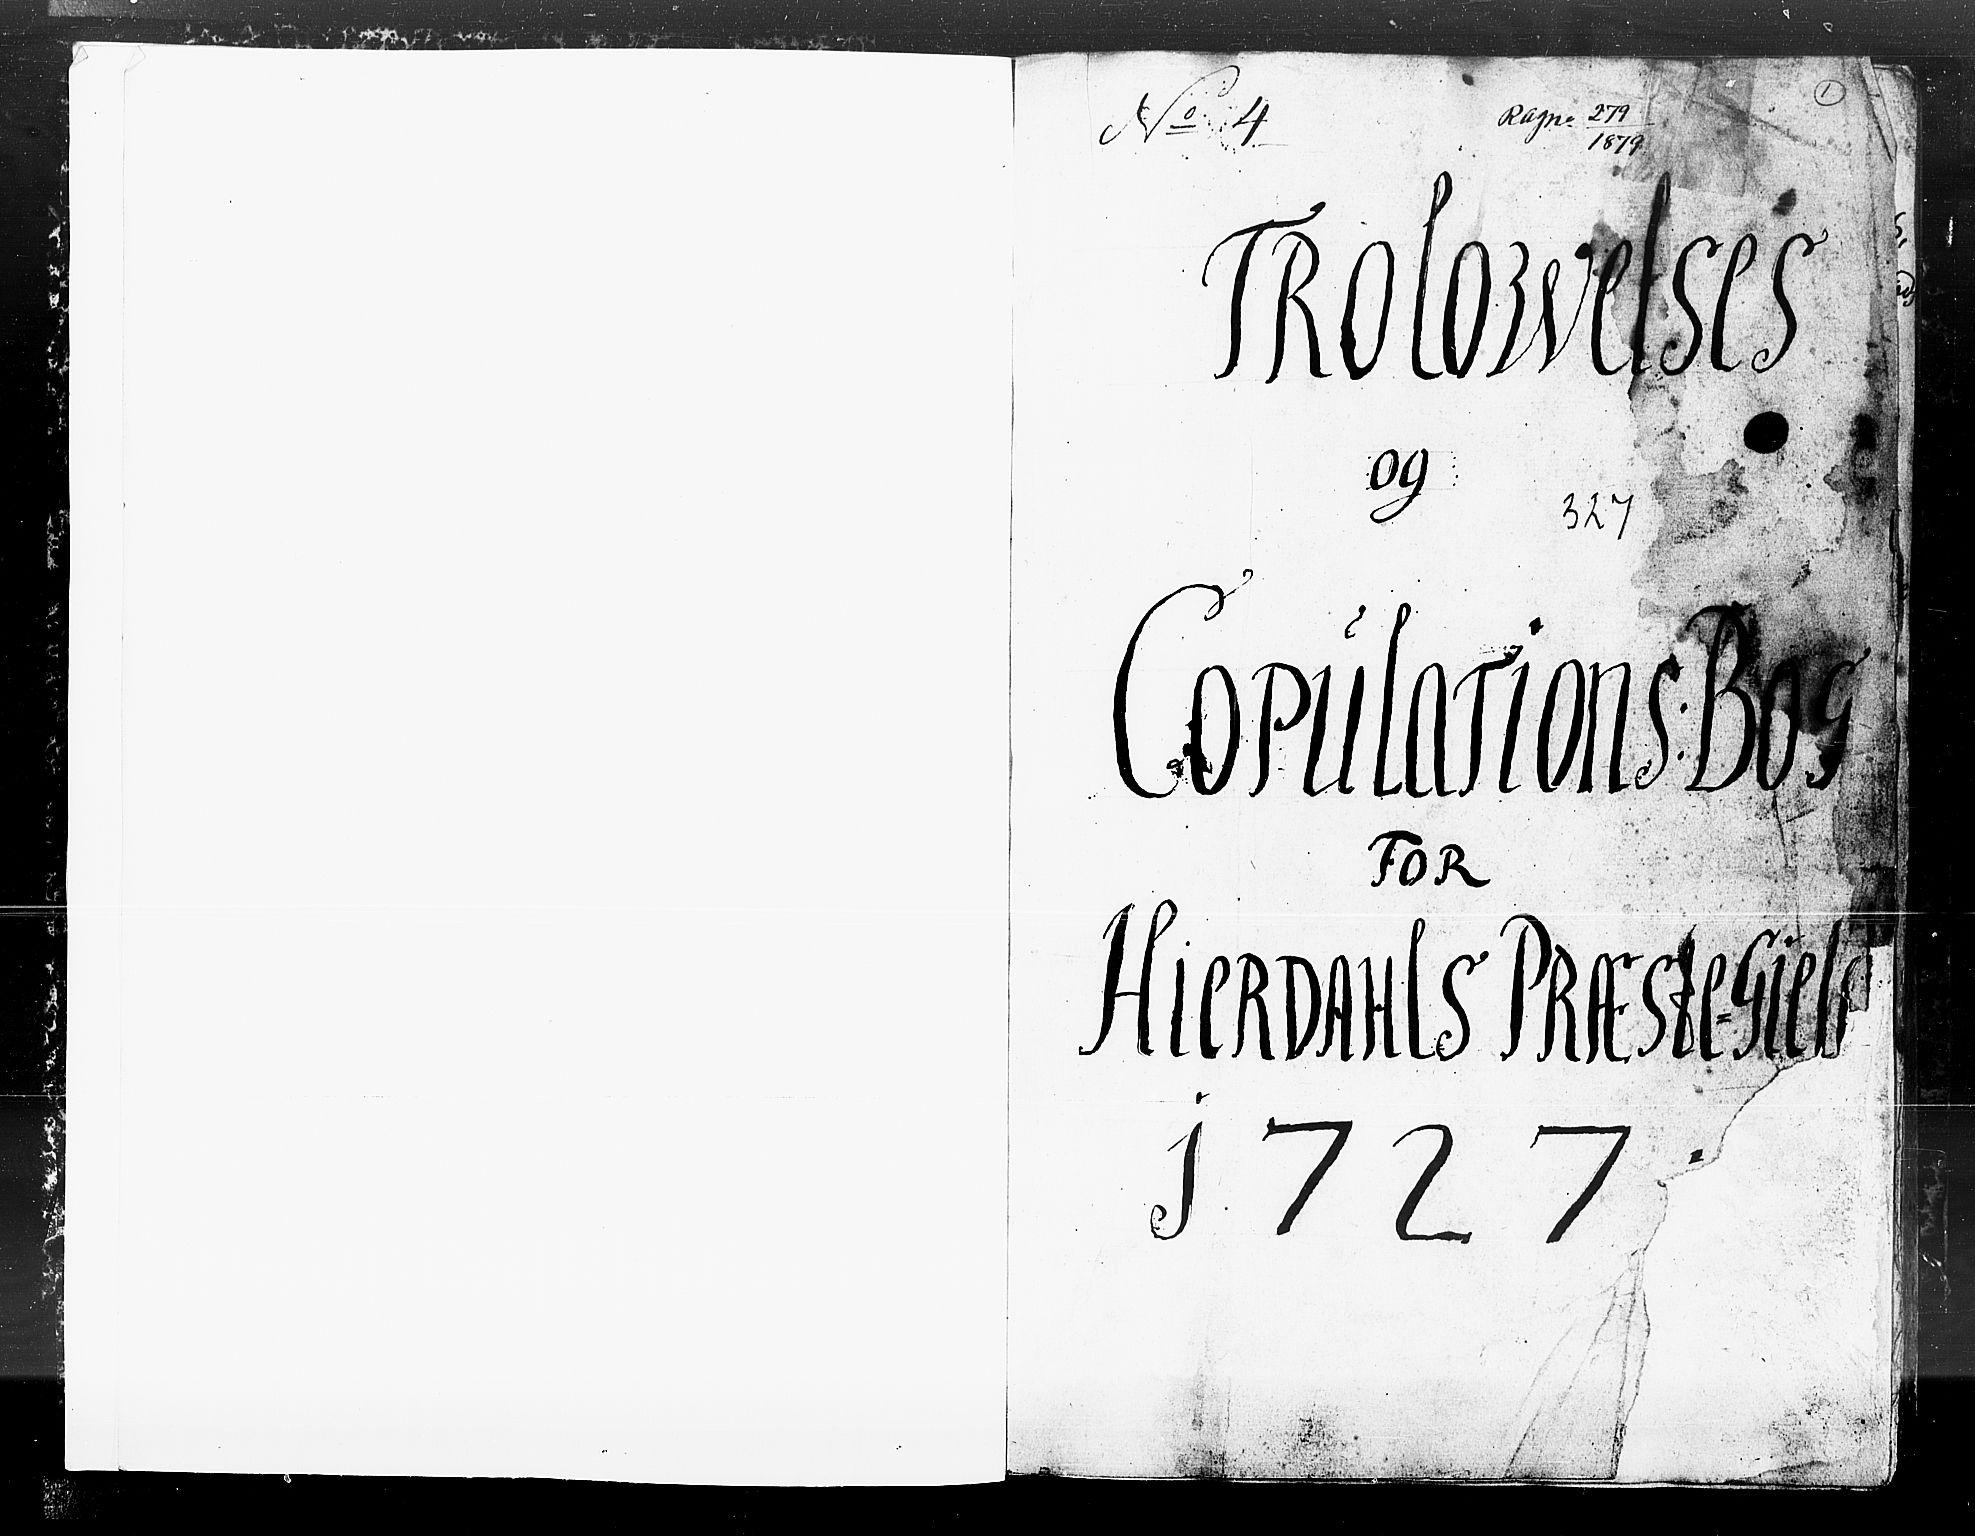 No 4
279
1879
1
TRolowelses
og
327
Copulations: Bog
FOR
HieRDAHls PRÆste=Gield
1727.